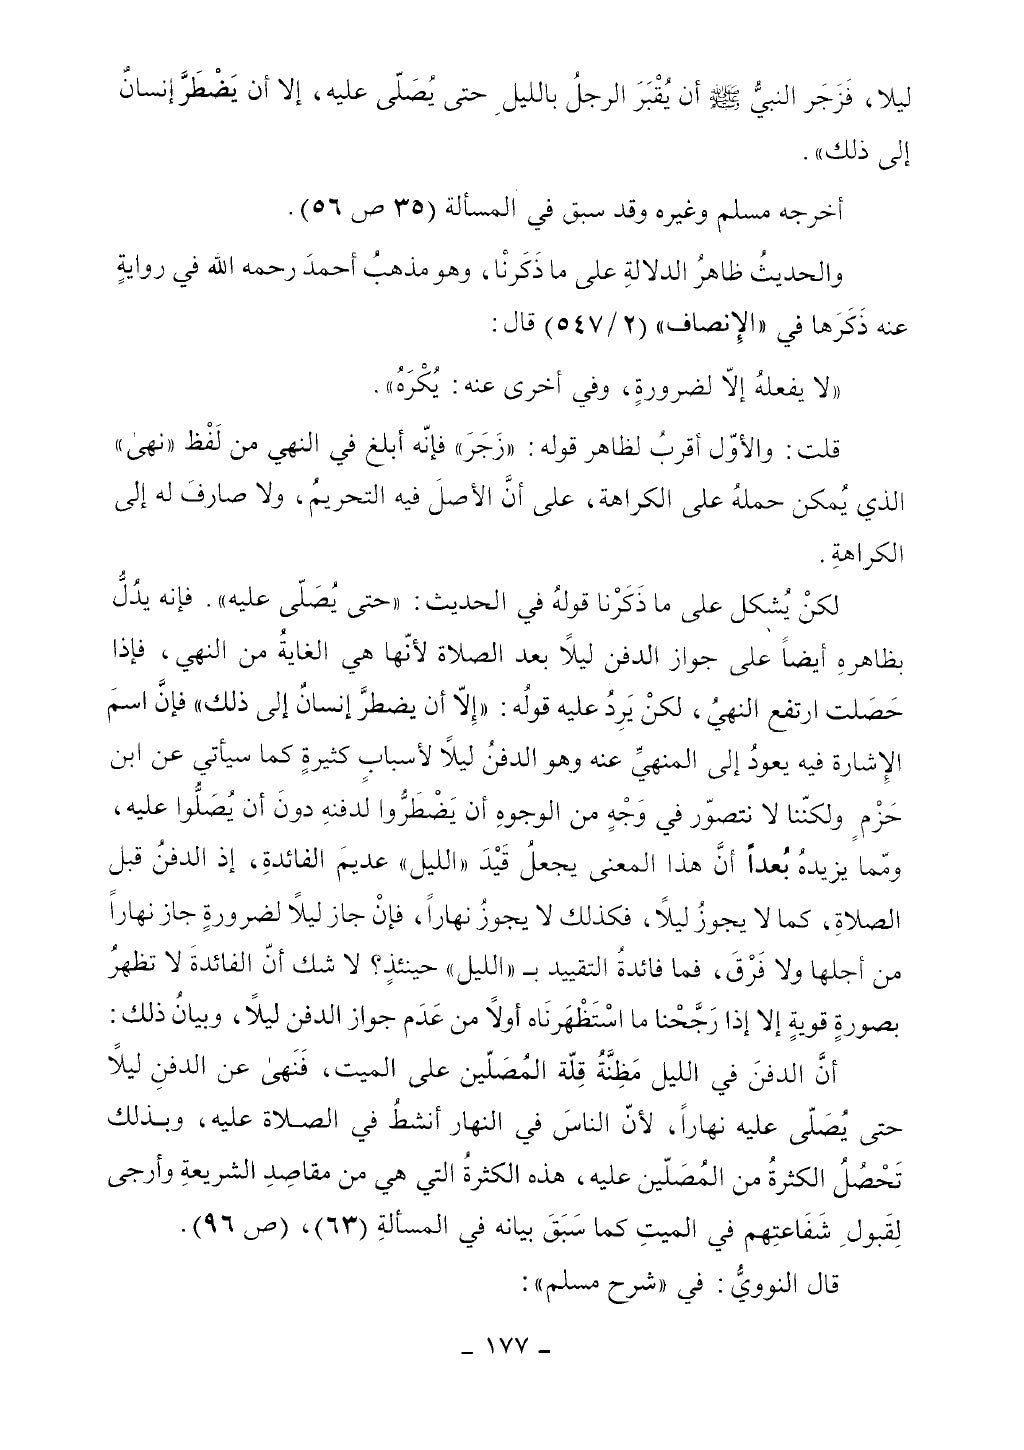 ليلا، فَزَجَر النبيُّ ﷺ أن يُقْبَرَ الرجلُ بالليلِ حتى يُصَلّى عليه، إلا أن يَضْطَرَّ إنسانٌ
إلى ذلك».
أخرجه مسلم وغيره وقد سبق في المسألة (٣٥ ص ٥٦).
والحديثُ ظاهرُ الدلالةِ على ما ذَكَرنْا، وهو مذهبُ أحمدَ رحمه الله في روايةٍ
عنه ذَكَرَها في «الإِنصاف» (٢/ ٥٤٧) قال:
«لا يفعلهُ إلّا لضرورةٍ، وفي أخرى عنه: يُكْرَهُ».
قلت: والأوّل أقربُ لظاهر قوله: «زَجَرَ» فإنّه أبلغ في النهي من لَفْظ «نهىٰ»
الذي يُمكن حملهُ على الكراهة، على أنَّ الأصلَ فيه التحريمُ، ولا صارفَ له إلى
الكراهةِ.
لكنْ يُشكل على ما ذَكَرْنا قولهُ في الحديث: «حتى يُصَلّى عليه». فإنه يدُلُّ
بظاهرهِ أيضاً على جواز الدفن ليلًا بعد الصلاة لأنّها هي الغايةُ من النهي، فإذا
حَصَلت ارتفع النهيُ، لكنْ يَرِدُ عليه قولُه: «إِلّا أن يضطرَّ إنسانٌ إلى ذلك» فإنَّ اسمَ
الإِشارة فيه يعودُ إلى المنهيِّ عنه وهو الدفنُ ليلًا لأسبابٍ كثيرةٍ كما سيأتي عن ابن
حَزْمٍ ولكنّنا لا نتصوّر في وَجْهٍ من الوجوهِ أن يَضْطَرُّوا لدفنهِ دونَ أن يُصَلُّوا عليه،
ومّما يزيدهُ بُعداً أنَّ هذا المعنى يجعلُ قَيْدَ «الليل» عديمَ الفائدةِ، إذ الدفنُ قبل
الصلاةِ، كما لا يجوزُ ليلًا، فكذلك لا يجوزُ نهاراً، فإنْ جاز ليلًا لضرورةٍ جاز نهاراً
من أجلها ولا فَرْقَ، فما فائدةُ التقييد بـ «الليل» حينئذٍ؟ لا شك أنّ الفائدةَ لا تظهرُ
بصورةٍ قويةٍ إلا إذا رَجَّحْنا ما اسْتَظْهَرنَاه أولًا من عَدَم جواز الدفن ليلًا، وبيانُ ذلك:
أنَّ الدفنَ في الليل مَظِنَّةُ قِلّة المُصَلّين على الميت، فَنَهىٰ عن الدفنِ ليلًا
حتى يُصَلّى عليه نهاراً، لأنّ الناسَ في النهار أنشطُ في الصـلاة عليه، وبـذلك
تَحْصُلُ الكثرةُ من المُصَلّين عليه، هذه الكثرةُ التي هي من مقاصِدِ الشريعةِ وأرجى
لِقَبولِ شَفَاعتِهم في الميتِ كما سَبَقَ بيانه في المسألةِ (٦٣)، (ص ٩٦).
قال النوويُّ: في «شرح مسلم»:
ـ ١٧٧ ـ